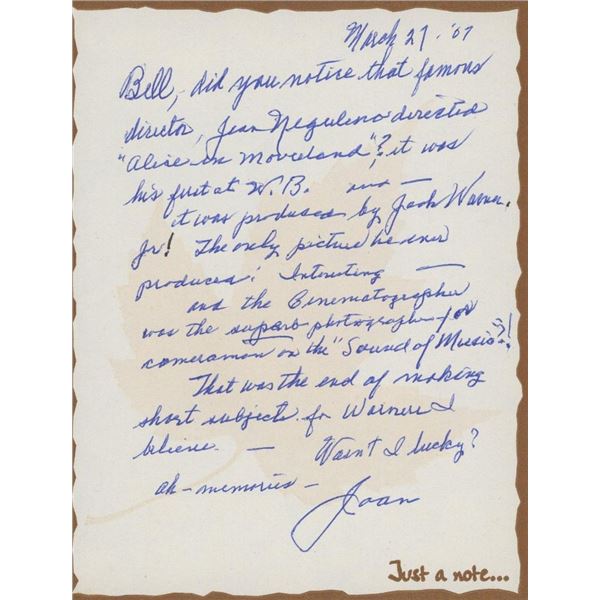 March 27 - '07
Bell, did you notice that famous
director, Jean Negulesco directed
"Alice in Movieland"? it was
his first at W.B. and —
it was produced by Jack Warner,
Jr! The only picture he ever
produced! Interesting —
and the Cinematographer
was the superb photographer / or
cameraman on the "Sound of Music"!
That was the end of making
short subjects for Warners I
believe. — Wasn't I lucky?
ah - memories -
Joan
Just a note...